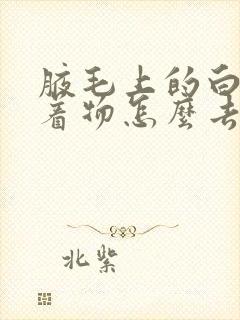 腋毛上的白
着物怎麼去
北紫